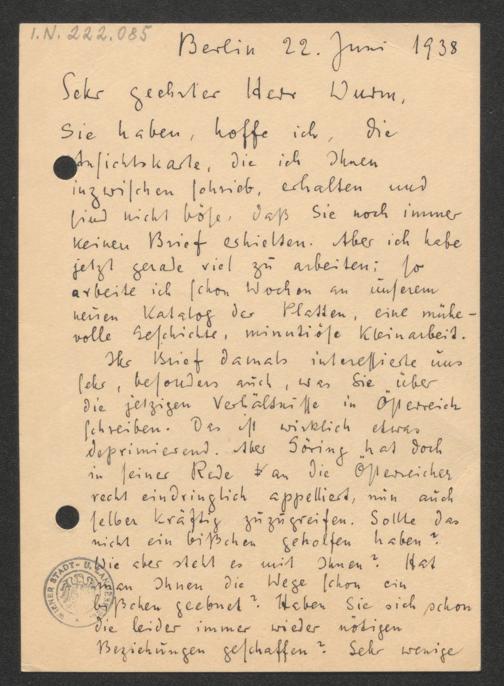 I.N. 222.085
Berlin 22. Juni 1938
Sehr geehrter Herr Wurm,
Sie haben, hoffe ich, die
Ansichtskarte, die ich Ihnen
inzwischen schrieb, erhalten und
sind nicht böse, daß Sie noch immer
keinen Brief erhielten. Aber ich habe
jetzt gerade viel zu arbeiten; so
arbeite ich schon Wochen an unserem
neuen Katalog der Platten, eine mühe-
volle Geschichte, minutiöse Kleinarbeit.
Ihr Brief damals interessierte uns
sehr, besonders auch, was Sie über
die jetzigen Verhältnisse in Österreich
schreiben. Das ist wirklich etwas
deprimierend. Aber Göring hat doch
in seiner Rede an die Österreicher
recht eindringlich appelliert, nun auch
selber kräftig zuzugreifen. Sollte das
nicht ein bißchen geholfen haben?
Wie aber steht es mit Ihnen? Hat
man Ihnen die Wege schon ein
bißchen geebnet? Haben Sie sich schon
die leider immer wieder nötigen
Beziehungen geschaffen? Sehr wenige
WIENER STADT- U.